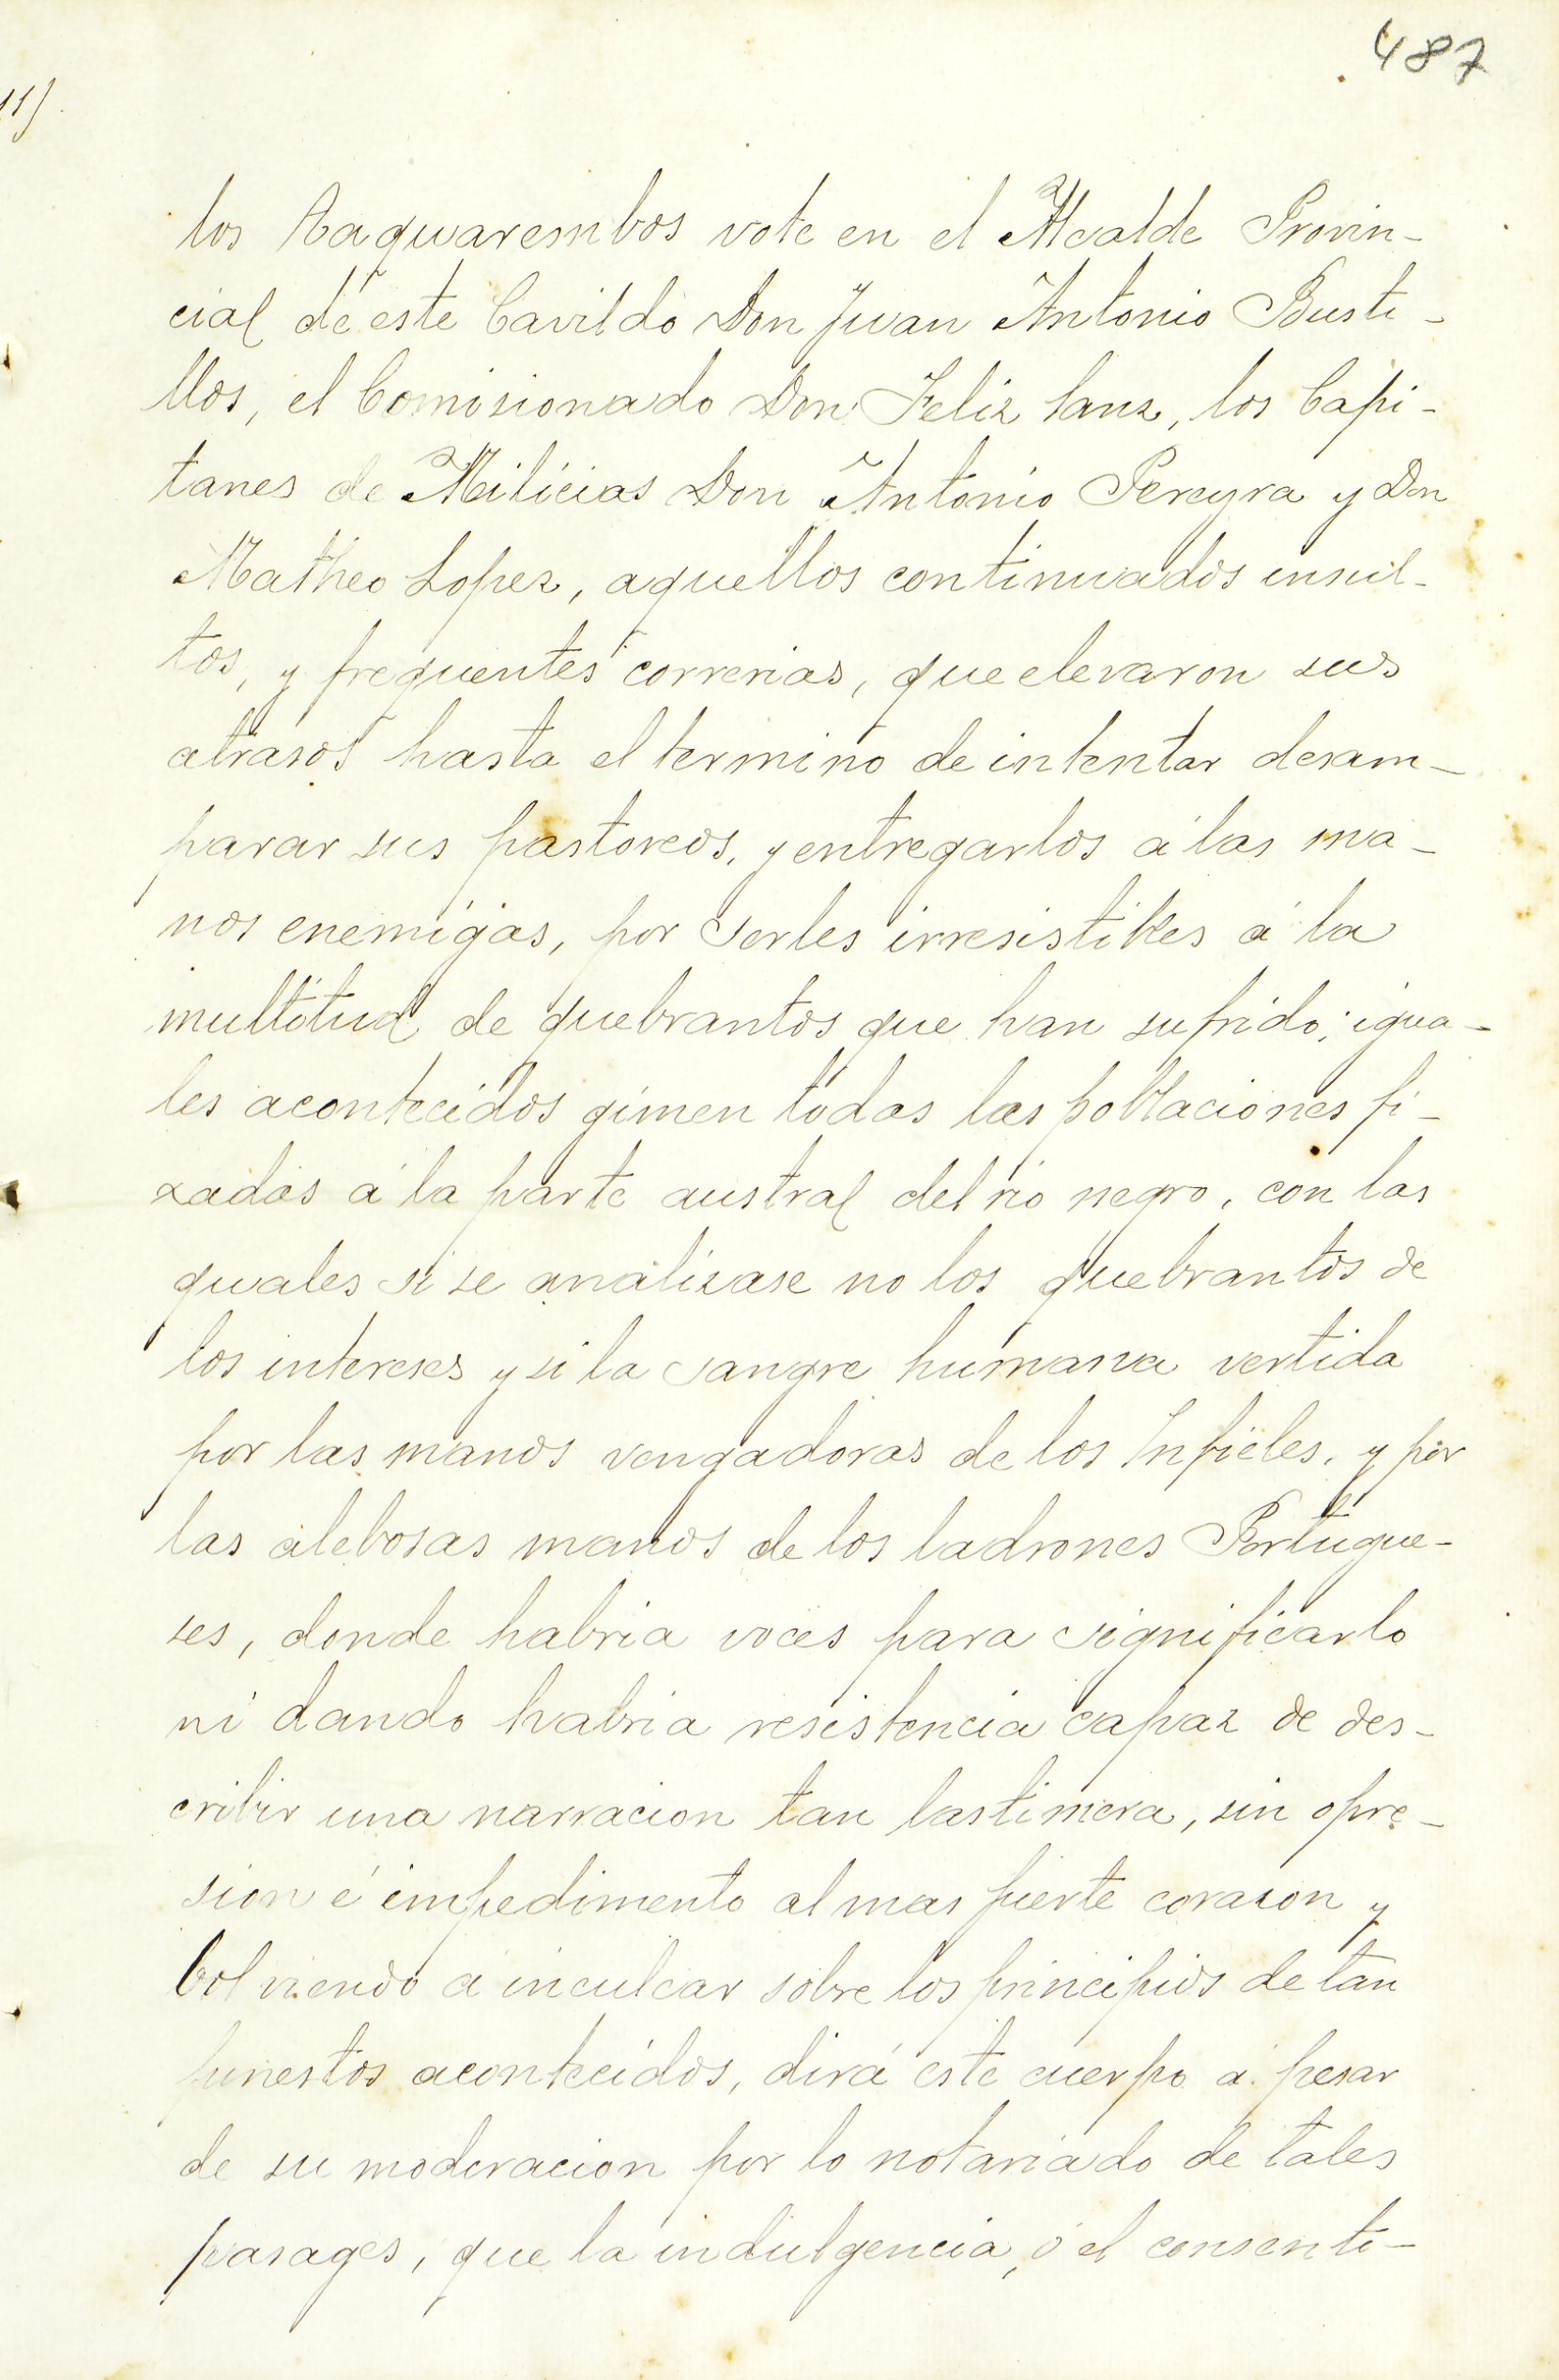 487
11)
los Taquarembos vote en el Alcalde Provin-
cial de este Cavildo Don Juan Antonio Busti-
llos, el Comisionado Don Feliz Sanz, los Capi-
tanes de Milicias Don Antonio Pereyra y Don
Matheo Lopez, aquellos continuados insul-
tos, y frequentes correrias, que elevaron sus
atrasos hasta el termino de intentar desam-
parar sus pastoreos, y entregarlos á las ma-
nos enemigas, por serles irresistibles á la
multitud de quebrantos que han sufrido; igua-
les acontecidos gimen todas las poblaciones fi-
xadas á la parte austral del rio negro, con las
quales si se analizase no los quebrantos de
los intereses y si la sangre humana vertida
por las manos vengadoras de los Infieles, y por
las alebosas manos de los ladrones Portugue-
ses, donde habria voces para significarlo
ni dando habria resistencia capaz de des-
cribir una narracion tan lastimera, sin opre-
sion é impedimento al mas fuerte corazon y
bolviendo a inculcar sobre los principios de tan
funestos acontecidos, dirá este cuerpo á pesar
de su moderacion por lo notariado de tales
pasages, que la indulgencia, ó el consenti-